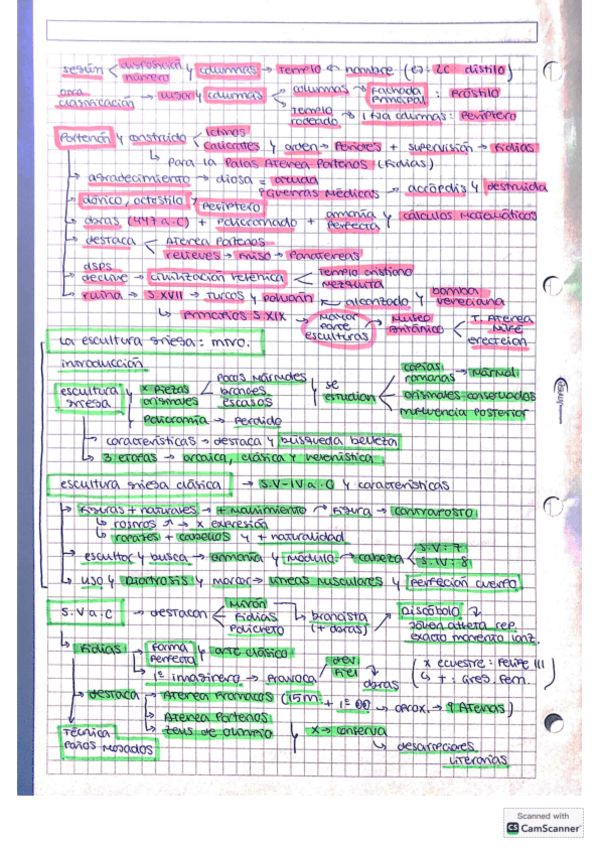 según < disposición número y columnas → Templo ↔ nombre (ej: 2C: distilo)
otra clasificación → lugar y columnas < columnas → Fachada Principal : Próstilo
Templo rodeado → 1 fila columnas: Períptero
Partenón y construido < Ictinos Calícrates y orden → Pericles + supervisión → Fidias
↳ Para la Palas Atenea Partenos (Fidias)
agradecimiento → diosa = ayuda Guerras Médicas → acrópolis y destruida
dórico, octástilo y Períptero
obras (447 a.C) + Policromado + armonía perfecta y cálculos matemáticos
destaca < Atenea Partenos
relieves → friso → Panateneas
dsps. declive → civilización helénica < Templo cristiano Mezquita
ruina → S.XVII → Turcos y polvorín alcanzado y bomba veneciana
↳ Principios S.XIX → Mayor parte esculturas → Museo Británico < T. Atenea Niké erecteion
La escultura griega: mnro.
introducción
escultura griega y x Piezas originales < Pocos Mármoles bronces escasos y se estudian < copias romanas → Mármol originales conservados influencia posterior
Policromía → Perdido
características → destaca y búsqueda belleza
3 etapas → arcaica, clásica y helenística
escultura griega clásica → S.V-IV a.C y características
figuras + naturales → + Movimiento → figura → contraposto
↳ rostros → x expresión
↳ ropajes + cabellos y + naturalidad
escultor y busca → armonía y módulo → cabeza < S.V: 7 S.IV: 8
uso y Diartrosis y marcar → líneas musculares y Perfección cuerpo
S.V a.C → destacan < Mirón Fidias Policleto
broncista (+ obras) → Discóbolo
Joven atleta rep. exacto momento lanz.
Fidias → Forma Perfecta y arte clásico
→ 1º imaginero → Provoca < dev. fiel → obras (x ecuestre: Felipe III
↳ + : Gres. Fem.)
destaca → Atenea Promacos (15m + 1ª → aprox. → 9 Atenas)
Atenea Partenos
Zeus de Olimpia y x → conserva
↳ descripciones literarias
Técnica Paños Mojados
Scanned with
CS CamScanner